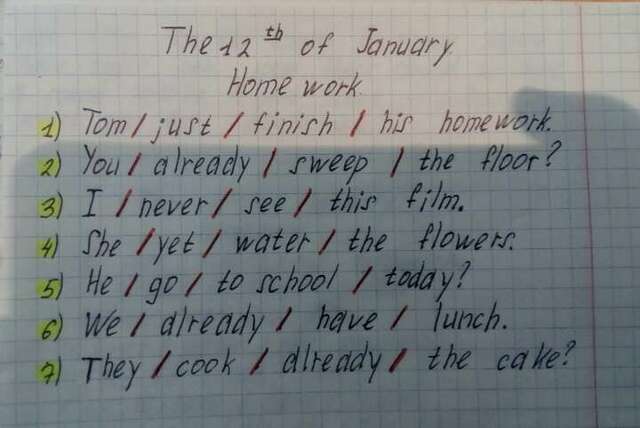 The 12th of January.
Home work.
1) Tom / just / finish / his homework.
2) You / already / sweep / the floor?
3) I / never / see / this film.
4) She / yet / water / the flowers.
5) He / go / to school / today?
6) We / already / have / lunch.
7) They / cook / already / the cake?